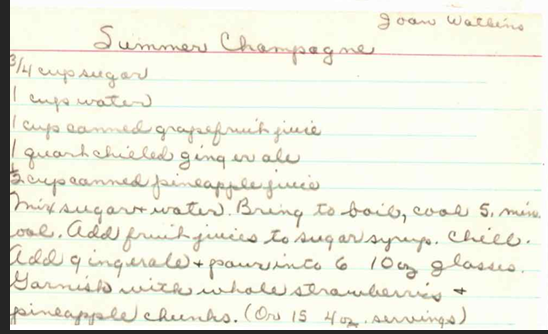 Joan Watkins
Summer Champagne
3/4 cup sugar
1 cup water
1 cup canned grapefruit juice
1 quart chilled ginger ale
1/2 cup canned pineapple juice
Mix sugar + water. Bring to boil, cook 5 min.
cool. Add fruit juices to sugar syrup. Chill.
Add gingerale + pour into 6 10 oz glasses.
Garnish with whole strawberries +
pineapple chunks. (Or 15 4 oz. servings)